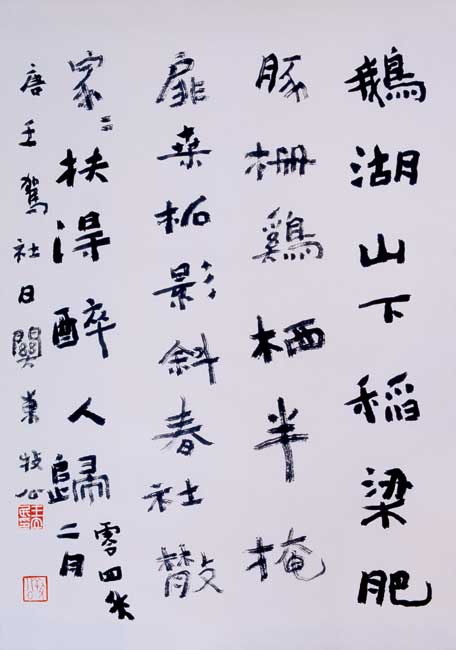 鵝湖山下稻梁肥
豚柵鷄栖半掩
扉桑柘影斜春社散
家々扶得醉人歸
零四年
二月
唐王駕社日關東牧公